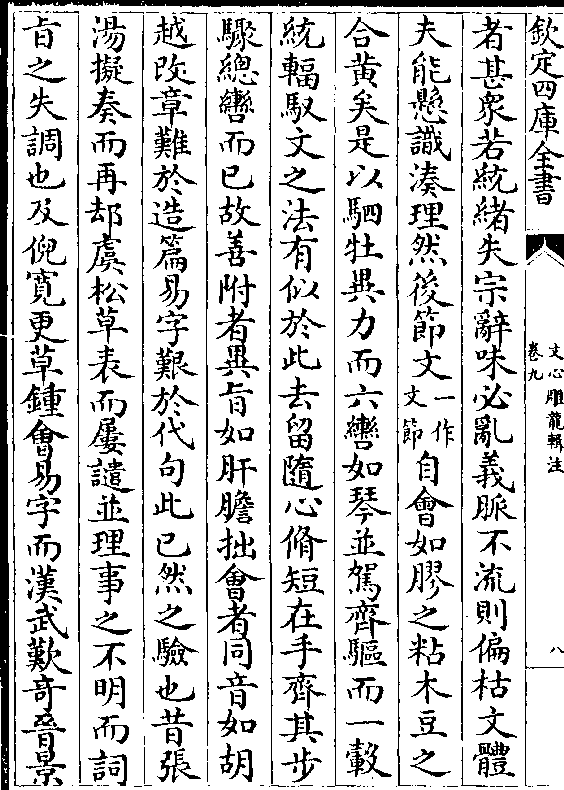 欽定四庫全書
文心雕龍輯注
卷九
八
者甚衆若統緒失宗辭味必亂義脈不流則偏枯文體
夫能懸識湊理然後節文一作文節自會如膠之粘木豆之
合黃矣是以駟牡異力而六轡如琴並駕齊驅而一轂
統輻馭文之法有似於此去留隨心脩短在手齊其步
驟總轡而已故善附者異旨如肝膽拙會者同音如胡
越改章難於造篇易字艱於代句此已然之驗也昔張
湯擬奏而再却虞松草表而屢譴並理事之不明而詞
旨之失調也及倪寛更草鍾會易字而漢武歎奇晉景